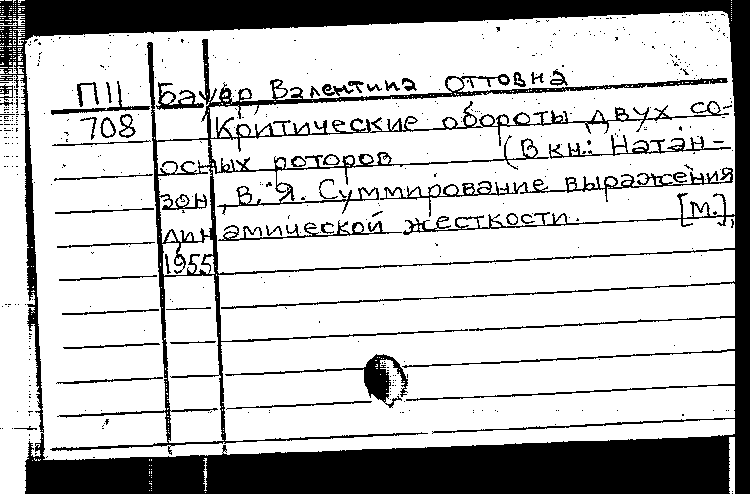 П11 Бауэр, Валентина Оттовна
708 Критические обороты двух со-
осных роторов (В кн.: Натан-
зон, В. Я. Суммирование выражения
динамической жесткости. [М.],
1955